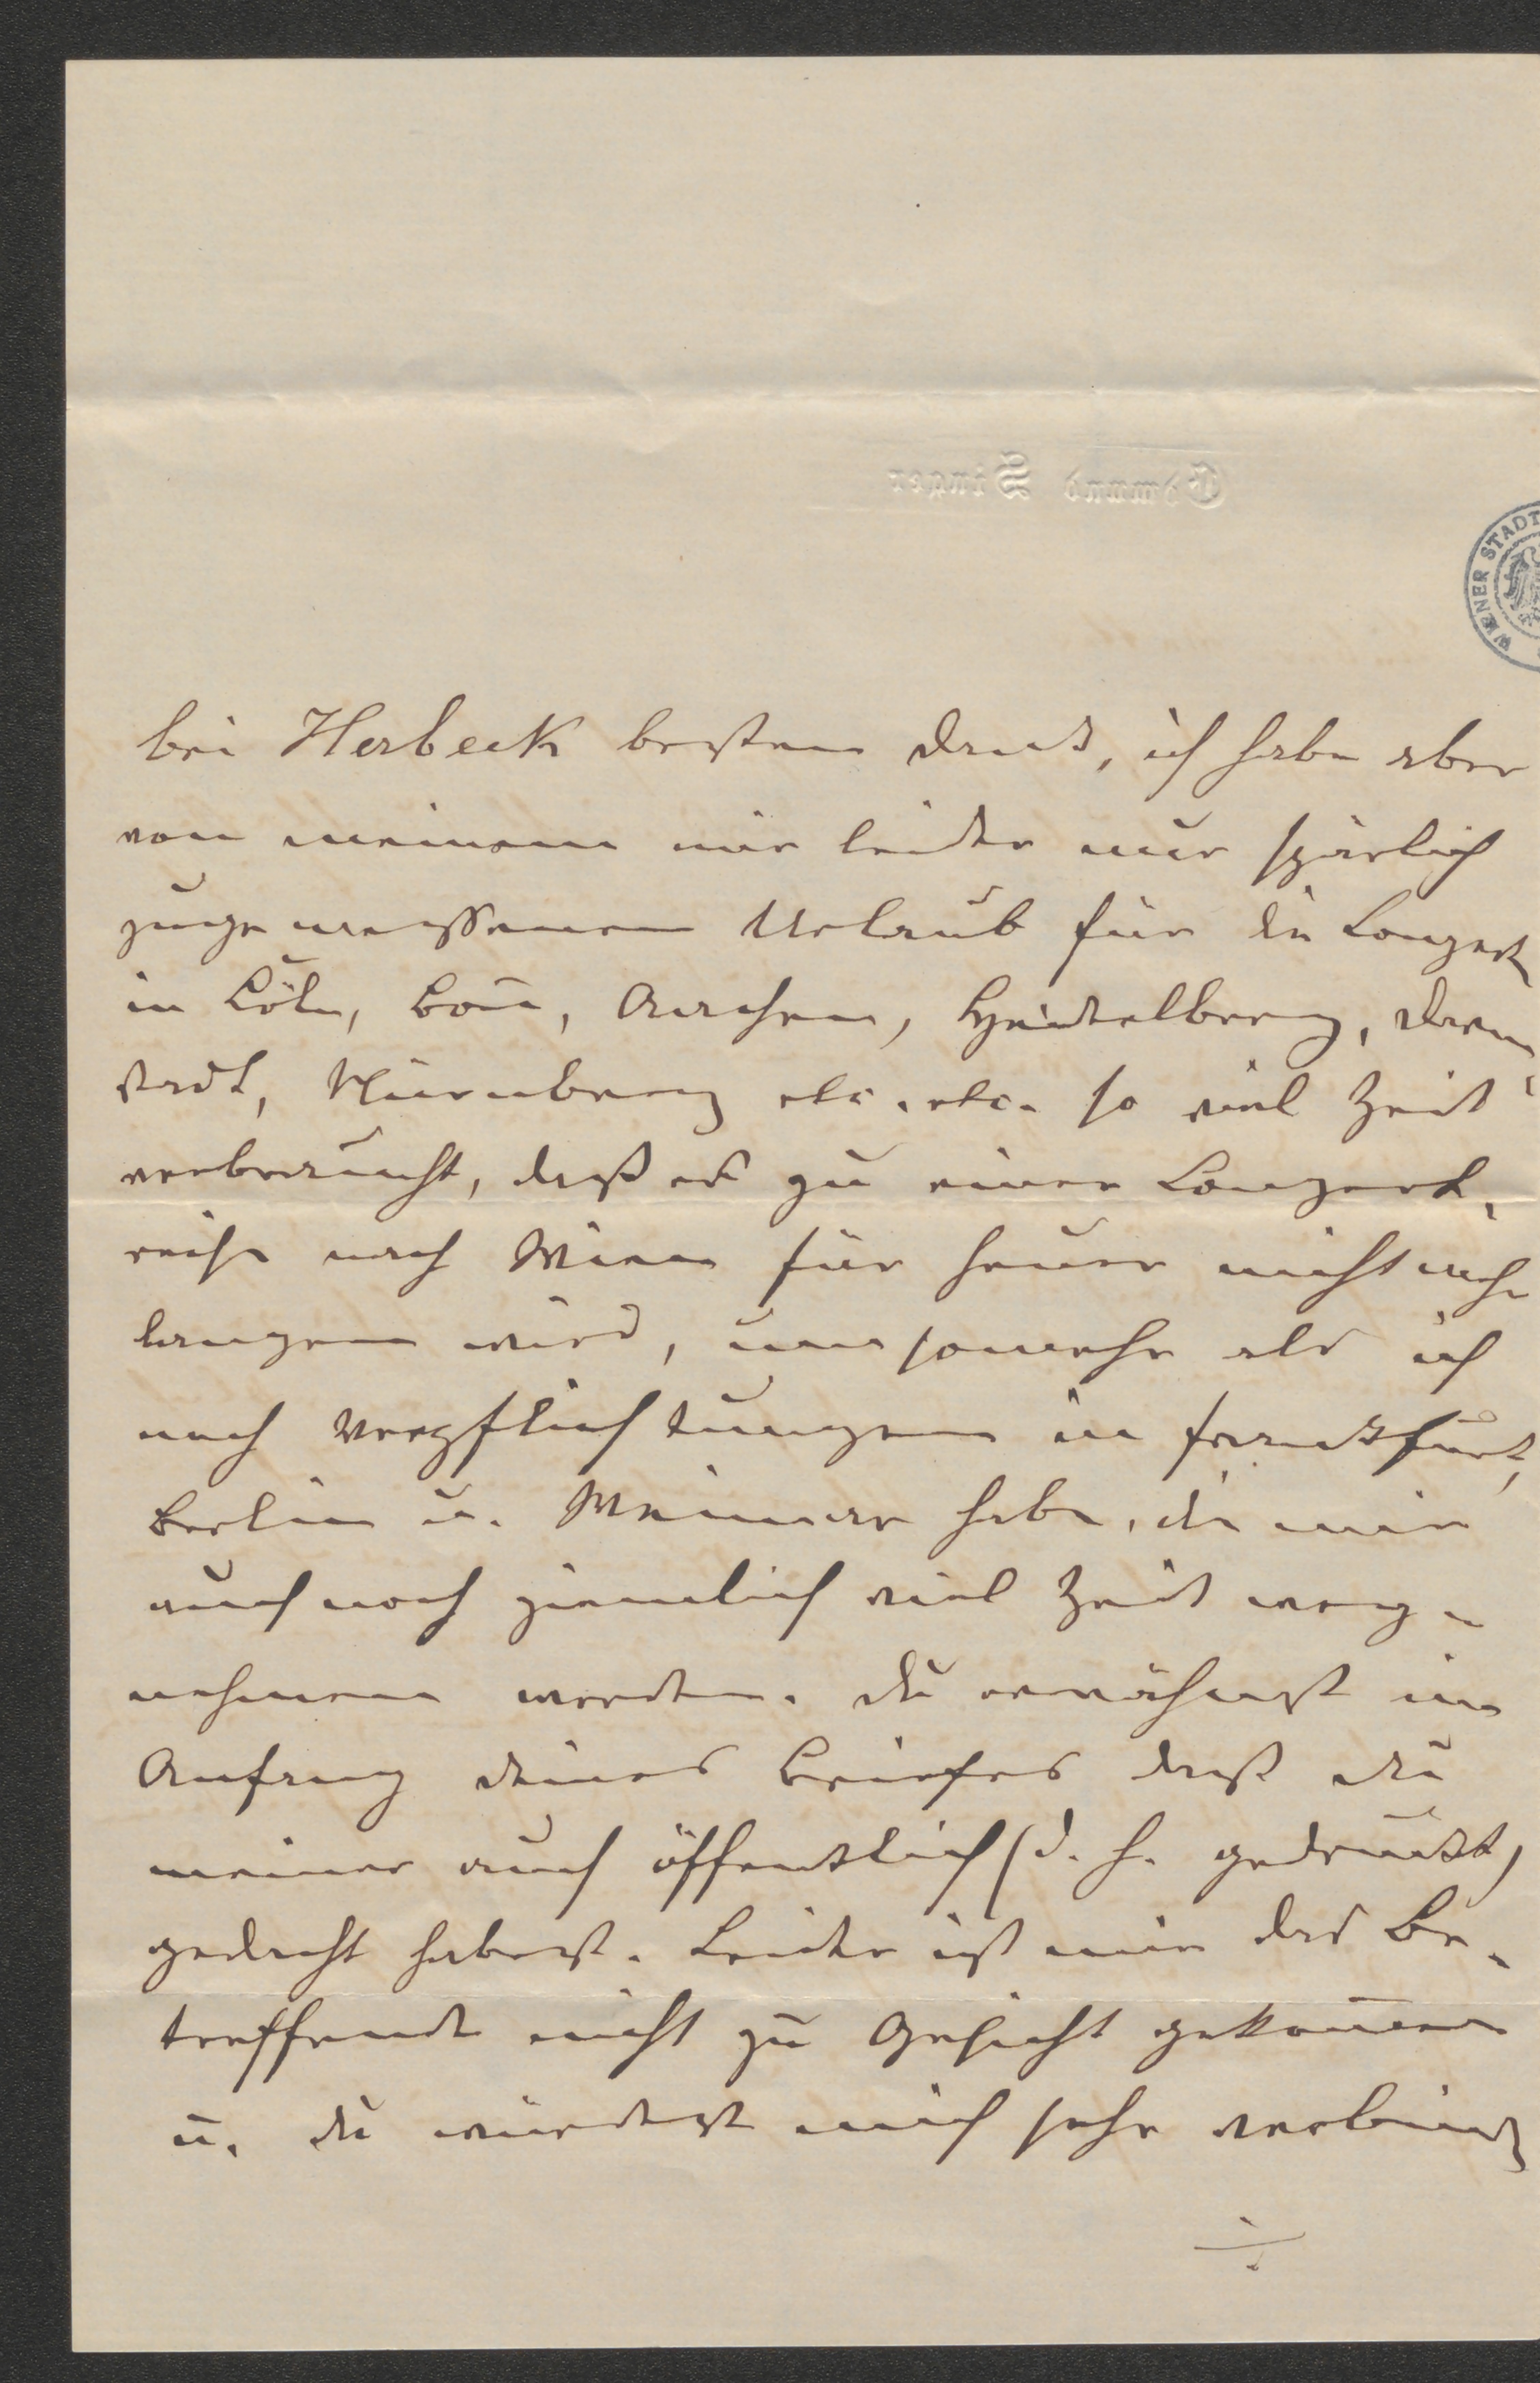 Edmund Singer
WIENER STADT
bei Herbeck besten Dank, ich habe aber
von meinem mir leider nur spärlich
zugemessenen Urlaub für die Conzerte
in Cöln, Bon̄, Aachen, Heidelberg, Darm-
stadt, Nürnberg etc. etc. so viel Zeit
verbraucht, daß es zu einer Conzert-
reise nach Wien für heuer nicht mehr
langen wird, umsomehr als ich
noch Verpflichtungen in Frankfurt,
Berlin u. Weimar habe, die mir
auch noch ziemlich viel Zeit weg-
nehmen werden. Du erwähnst im
Anfang deines Briefes daß du
meiner auch öffentlich (d. h. gedruckt)
gedacht habest. Leider ist mir das Be-
treffende nicht zu Gesicht gekom̄en
u. du würdest mich sehr verbinden